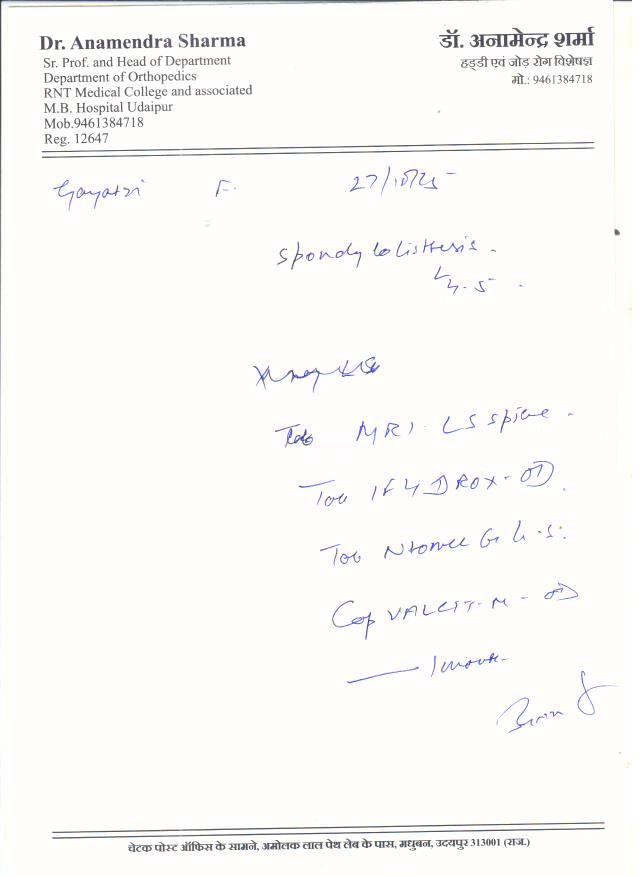 Dr. Anamendra Sharma
Sr. Prof. and Head of Department
Department of Orthopedics
RNT Medical College and associated
M.B. Hospital Udaipur
Mob.9461384718
Reg. 12647
डॉ. अनामेन्द्र शर्मा
हड्डी एवं जोड़ रोग विशेषज्ञ
मो.: 9461384718
Gayatri F. 27/10/25
Spondylolisthesis.
L4.5.
MRI. LS spine.
OD
Tab h.s.
Cap - OD
1 month
चेटक पोस्ट ऑफिस के सामने, अमोलक लाल पेथ लेब के पास, मधुबन, उदयपुर 313001 (राज.)